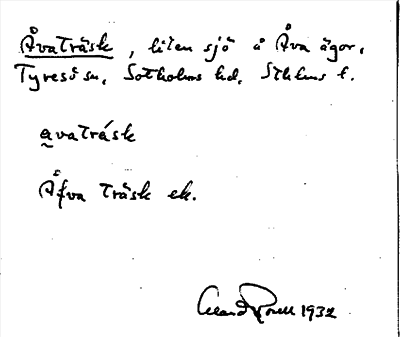 Åvaträsk, liten sjö å Åva ägor,
Tyresö sn, Sotholms hd, Sthlms l.
avaträsk
Åfva träsk ek.
1932